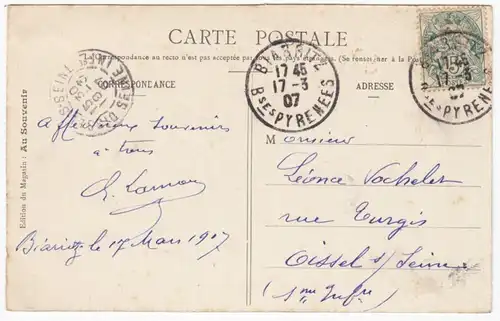 CARTE POSTALE
La Correspondance au recto n'est pas acceptée par tous pays étrangers. (Se renseigner à la Poste
CORRESPONDANCE
ADRESSE
BIARRITZ
17 45
17-3
07
BSES PYRENEES
17 45
17-3
07
BSES PYRENEES
Edition du Magasin : Au Souvenir
Affectueux souvenirs
à tous
Biarritz le 17 Mars 1907
Monsieur
Léonce Vochelet
rue Turgis
Oissel s/ Seine
(Sne Infre)